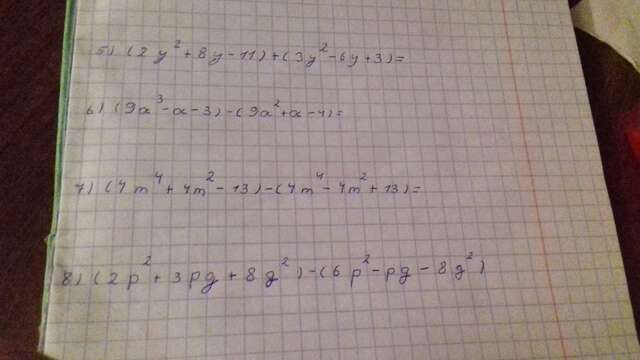 5) (2y²+8y-11)+(3y²-6y+3)=
6) (9a³-a-3)-(9a²+a-4)=
7) (7m⁴+4m²-13)-(4m⁴-4m²+13)=
8) (2p²+3pg+8g²)-(6p²-pg-8g²)